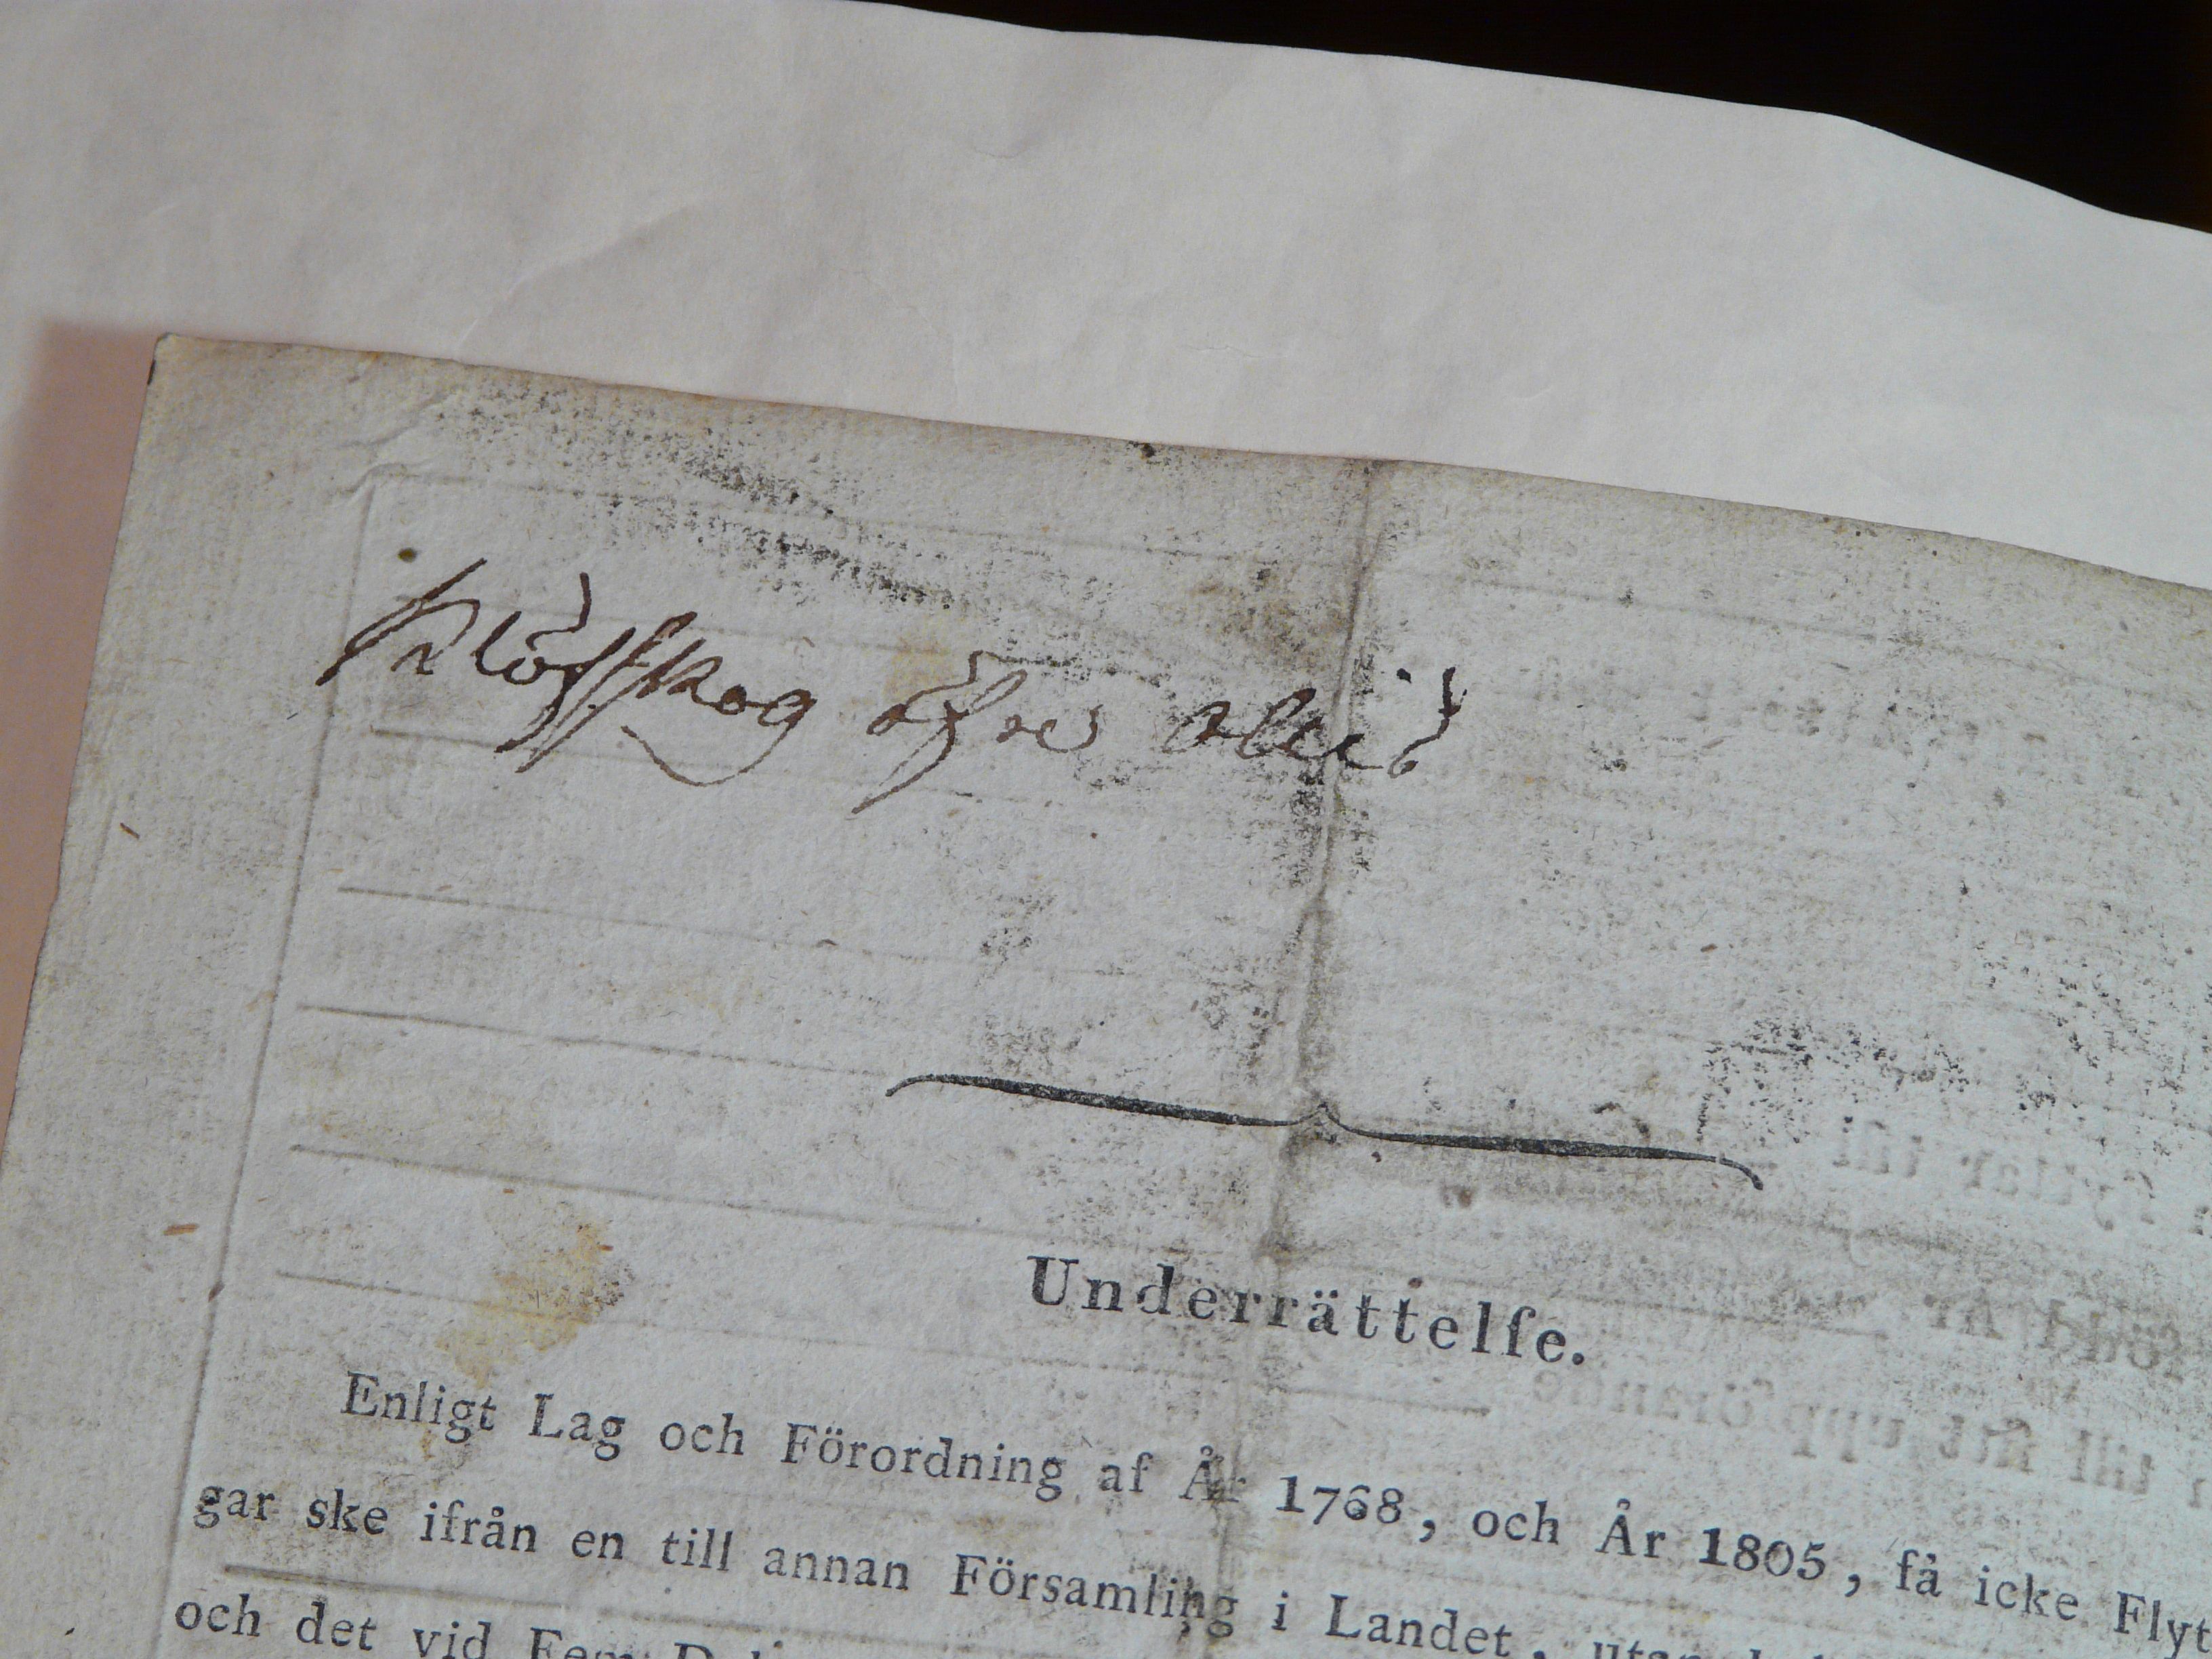 Klöfskog öfre
Underrättelſe.
Enligt Lag och Förordning af År 1768, och År 1805, få icke Flyt
gar ske ifrån en till annan Församling i Landet, utan
och det vid Fem